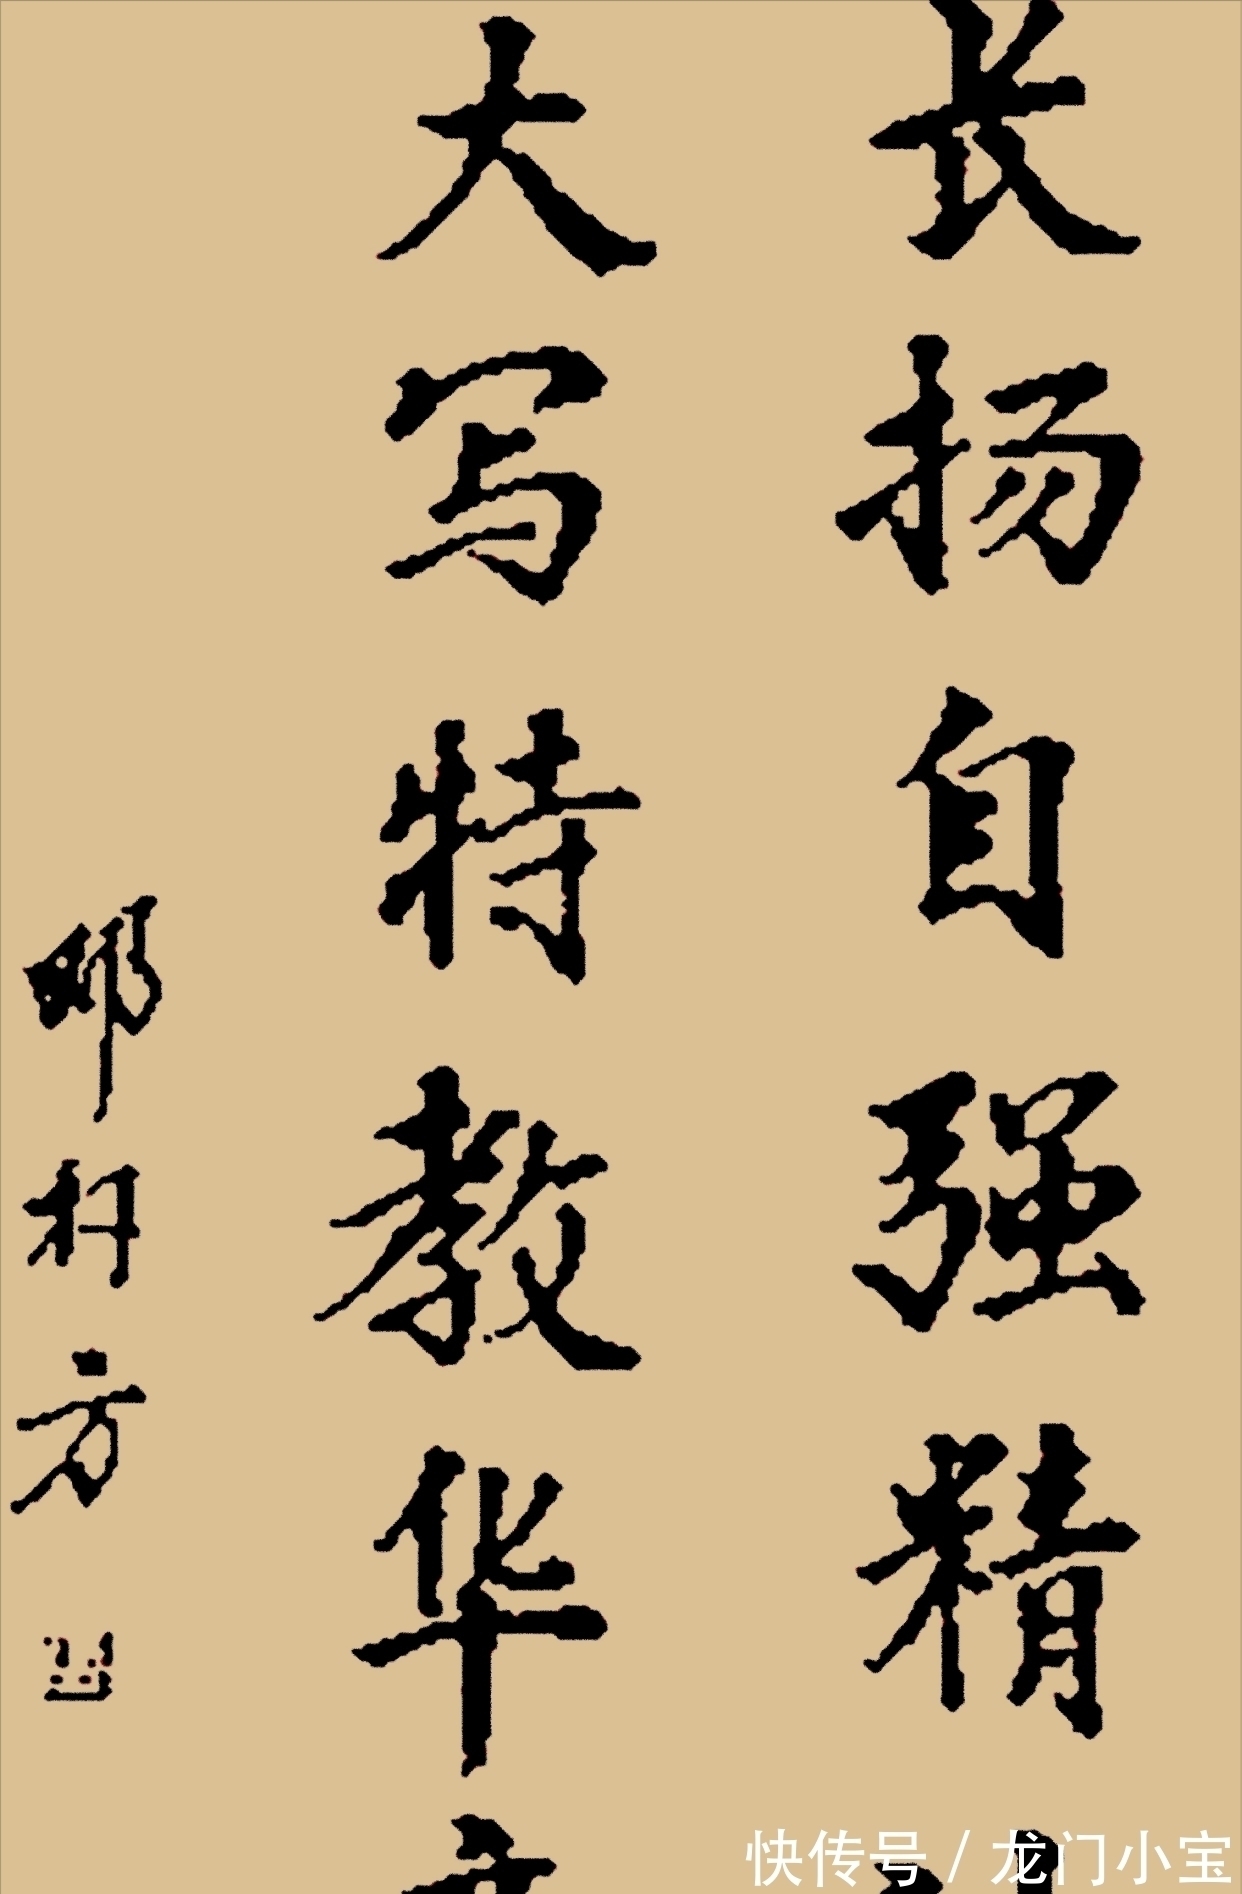 长扬自强精
大写特教华
邓村方
快传号 / 龙门小宝